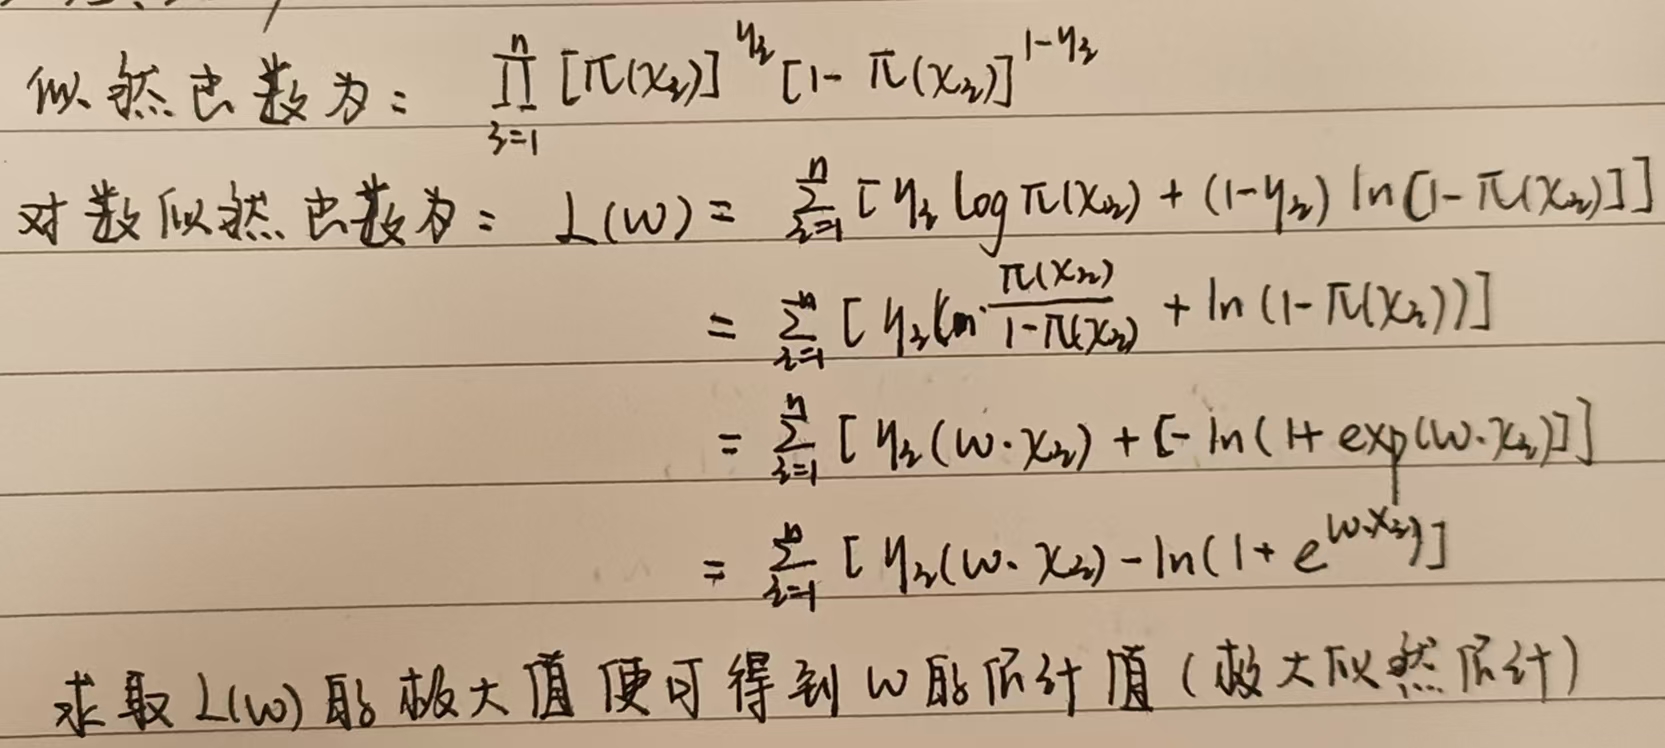 似然函数为： ∏_{i=1}^{n} [π(x_i)]^{y_i} [1-π(x_i)]^{1-y_i}
对数似然函数为： L(w) = ∑_{i=1}^{n} [y_i log π(x_i) + (1-y_i) ln[1-π(x_i)]]
= ∑_{i=1}^{n} [y_i ln \frac{π(x_i)}{1-π(x_i)} + ln(1-π(x_i))]
= ∑_{i=1}^{n} [y_i(w·x_i) + [-ln(1+exp(w·x_i)]]
= ∑_{i=1}^{n} [y_i(w·x_i) - ln(1+e^{w·x_i})]
求取L(w)的极大值便可得到w的估计值(极大似然估计)